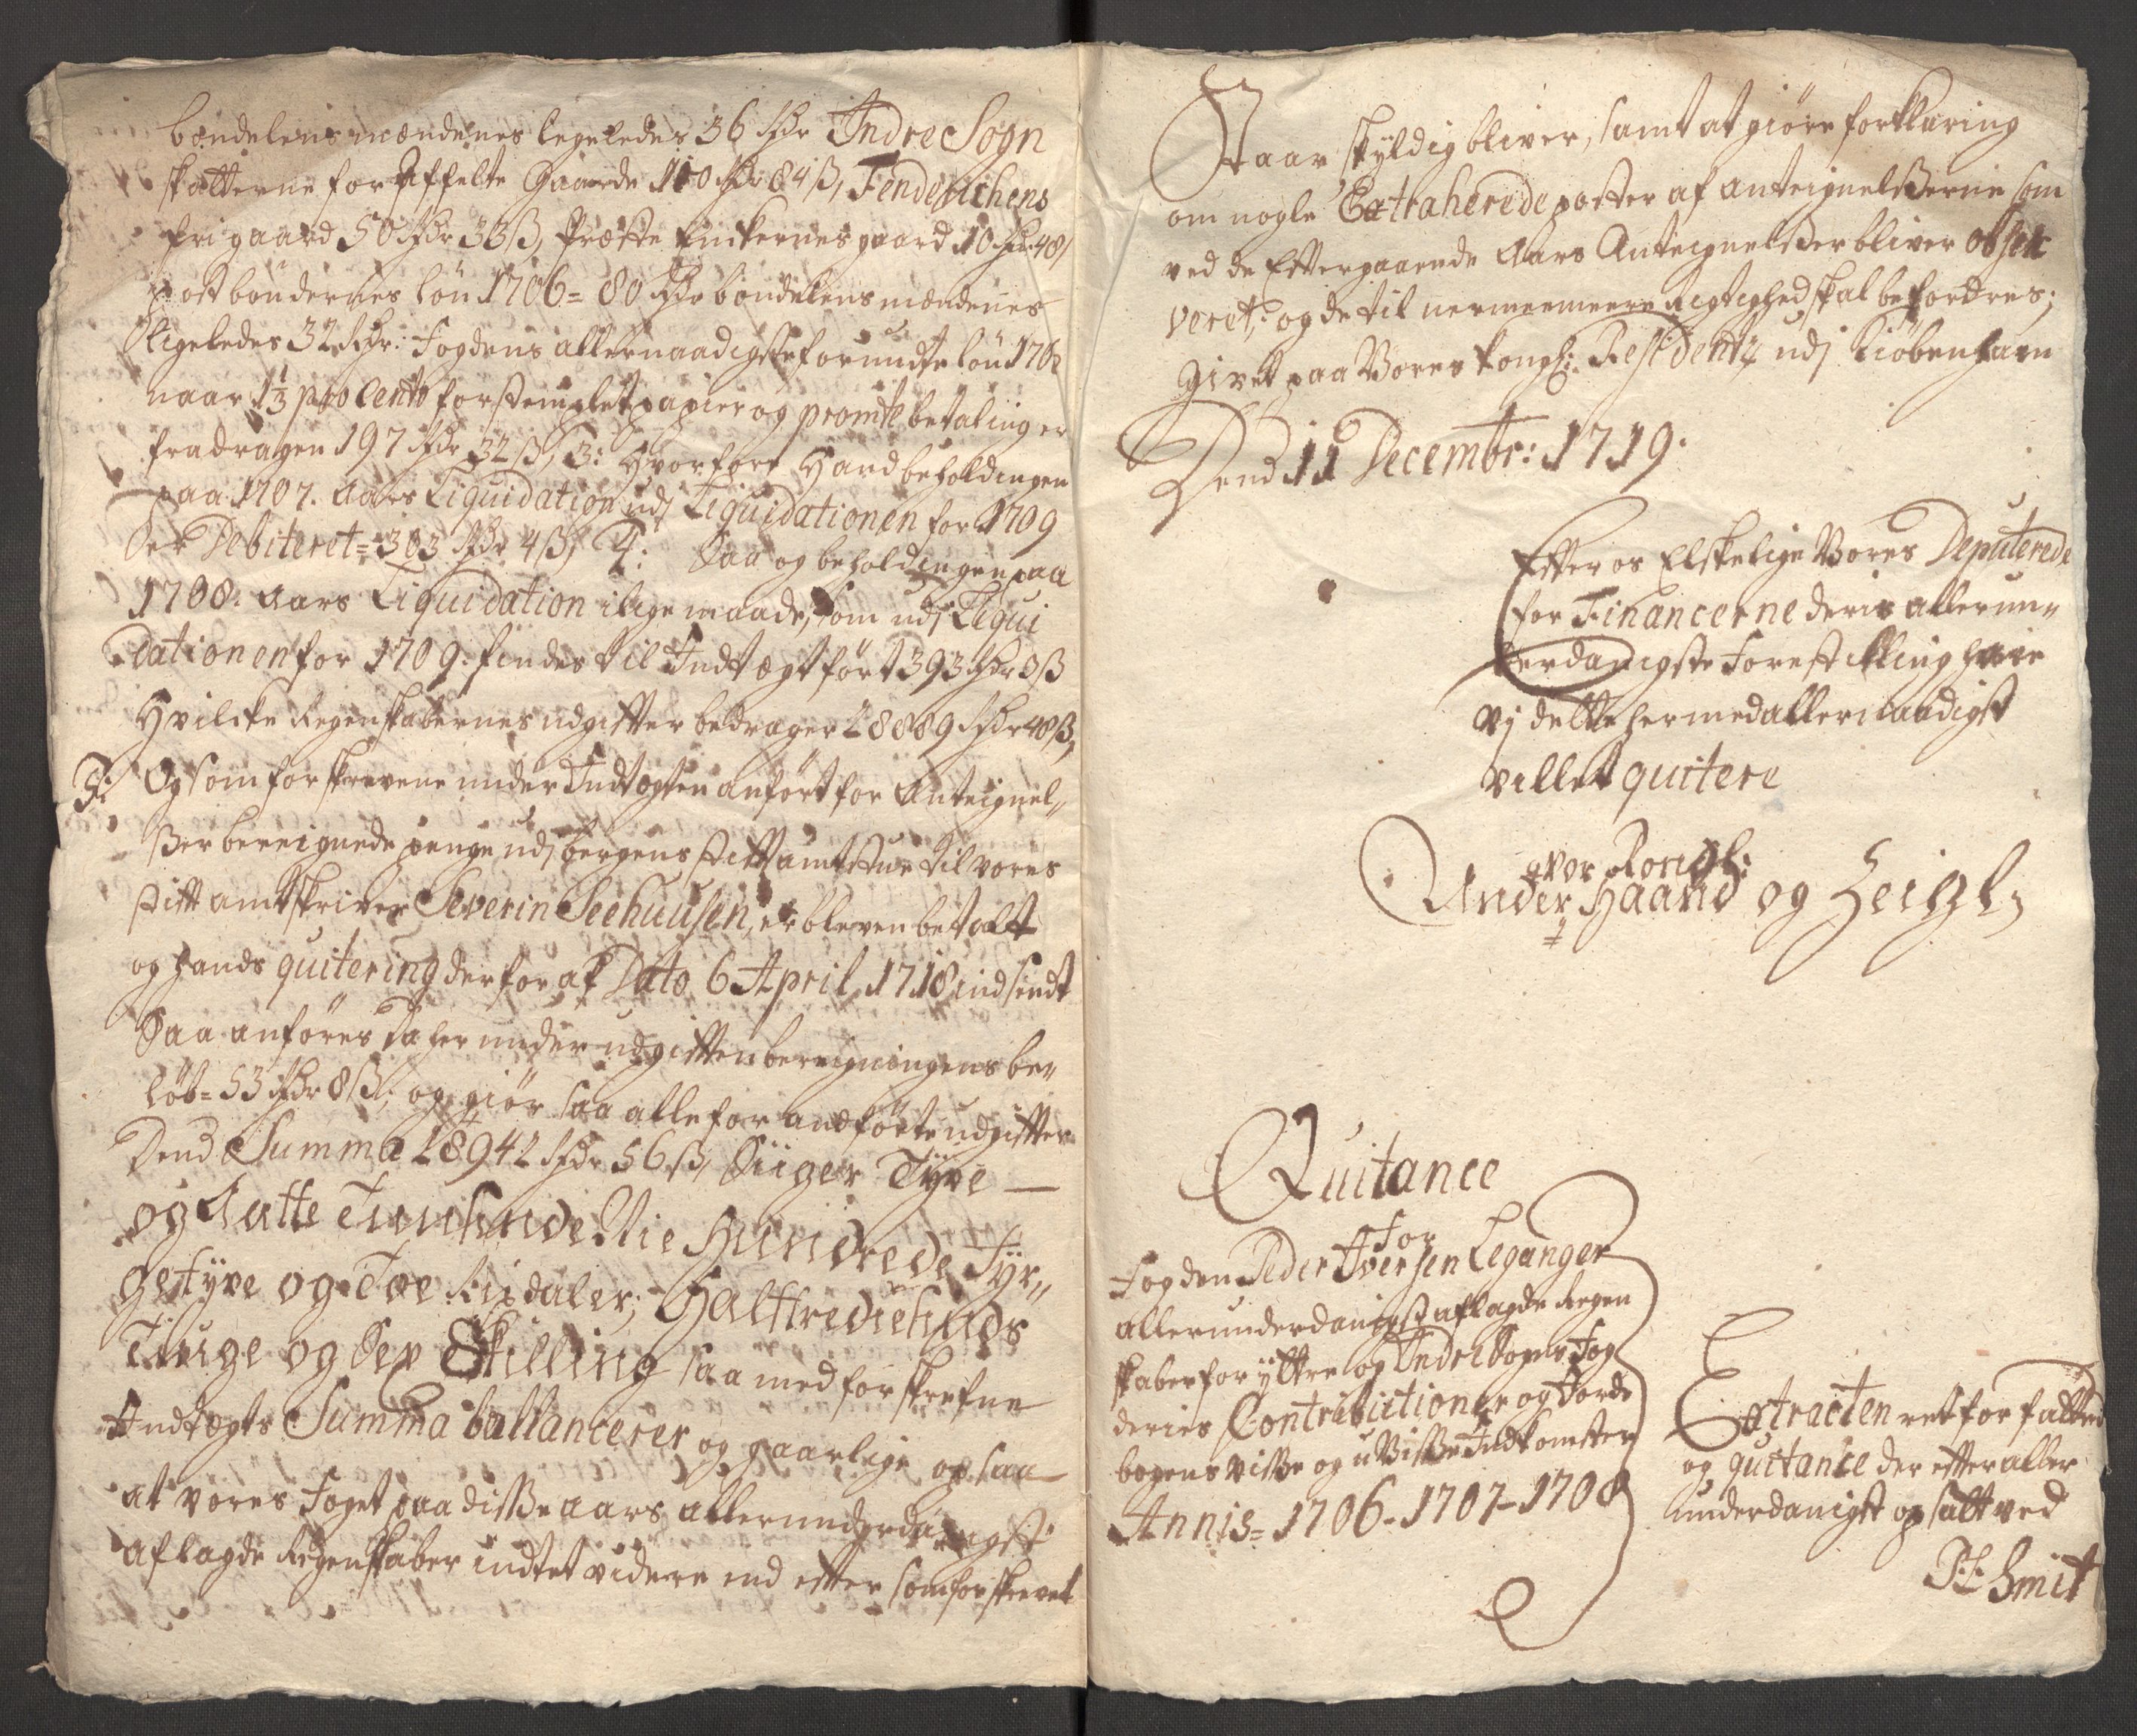 bondelensmændenes ligeledes 36 Rdr Indre Sogn
skatterne for Affelte Gaarde 110 Rdr 84 ß, Fendrichens
frigaard 50 Rdr 33 ß, Præste Enkernes gaard 10 Rdr 48 ß
Postbøndernes løn 1706 = 80 Rdr bondelensmændenes
ligeledes 32 Rdr: Fogdens allernaadigste forundte løn
naar 1⅓ pro Cento for stemplet papier og promte betaling er
fradragen 197 Rdr 32 ß, 3: Hvorfore Hand beholdingen
paa 1707. Aars Liquidation udj Liquidationen for 1709
er Debiteret = 303 Rdr 4 ß, 4: Saa og beholdingen paa
1708. Aars Liquidation i lige maade, som udj Liqui
dationen for 1709. findes til Indtægt ført 393 Rdr
Hvilcke Regenskabernes udgifter bedrager 28889 Rdr 48 ß,
5: Og som forskrevene under Indtægten anført for Anteignel„
ßer bereignede penge udj bergens stiftamtstue til vores
stiftamtskriver Severin Seehuusen, er bleven betalt
og hands quitering derfor af Dato 6 April 1718 indsendt
Saa anføres da her under udgiften beregningens be„
løb = 53 Rdr 8 ß; og giør saa alle for anførte udgifter
Dend Summa 28942 Rdr 56 ß, Siiger Tyve —
og Aatte Tuusinde Nie Hundrede Fyr„
getyve og Toe Rixdaler, Halftrediesinds
Tiuge og Sex Skilling saa med forskrefne
Indtægts Summa ballancerer og gaar lige op saa
at vores Foget paa diße aars allerunderdanigst
aflagde Regenskaber indtet videre end efter som forskrevet
Staar skyldig bliver, samt at giøre forklaring
om nogle Extraherede poster af anteignelßerne som
ved de Eftergaaende Aars Anteignelser bliver obser
veret; og de til nermeemeere Rigtighed skal befordres;
Givet paa Vores Kongl: Residentz udj Kiøbenhafn
Dend 11 Decembr: 1719.
Efter os Elskelige Vores Deputerede
for Financerne deris allerun„
derdanigste Forestilling have
vj dette hermed allernaadigst
villet quitere
Under vor Kongl:
Haand og Zeigl,
Quitance
For
Fogden Peder Iversen Leganger
allerunderdanigst aflagde Regen
skaber for ÿttre og Indre Sogns Fog
deries Contributioner og Jorde
bogens viße og uviße Indkomster
Annis = 1706 - 1707 - 1708
Extracten ret forfatted
og quitance der efter aller
underdanigst opsatt ved
Smit